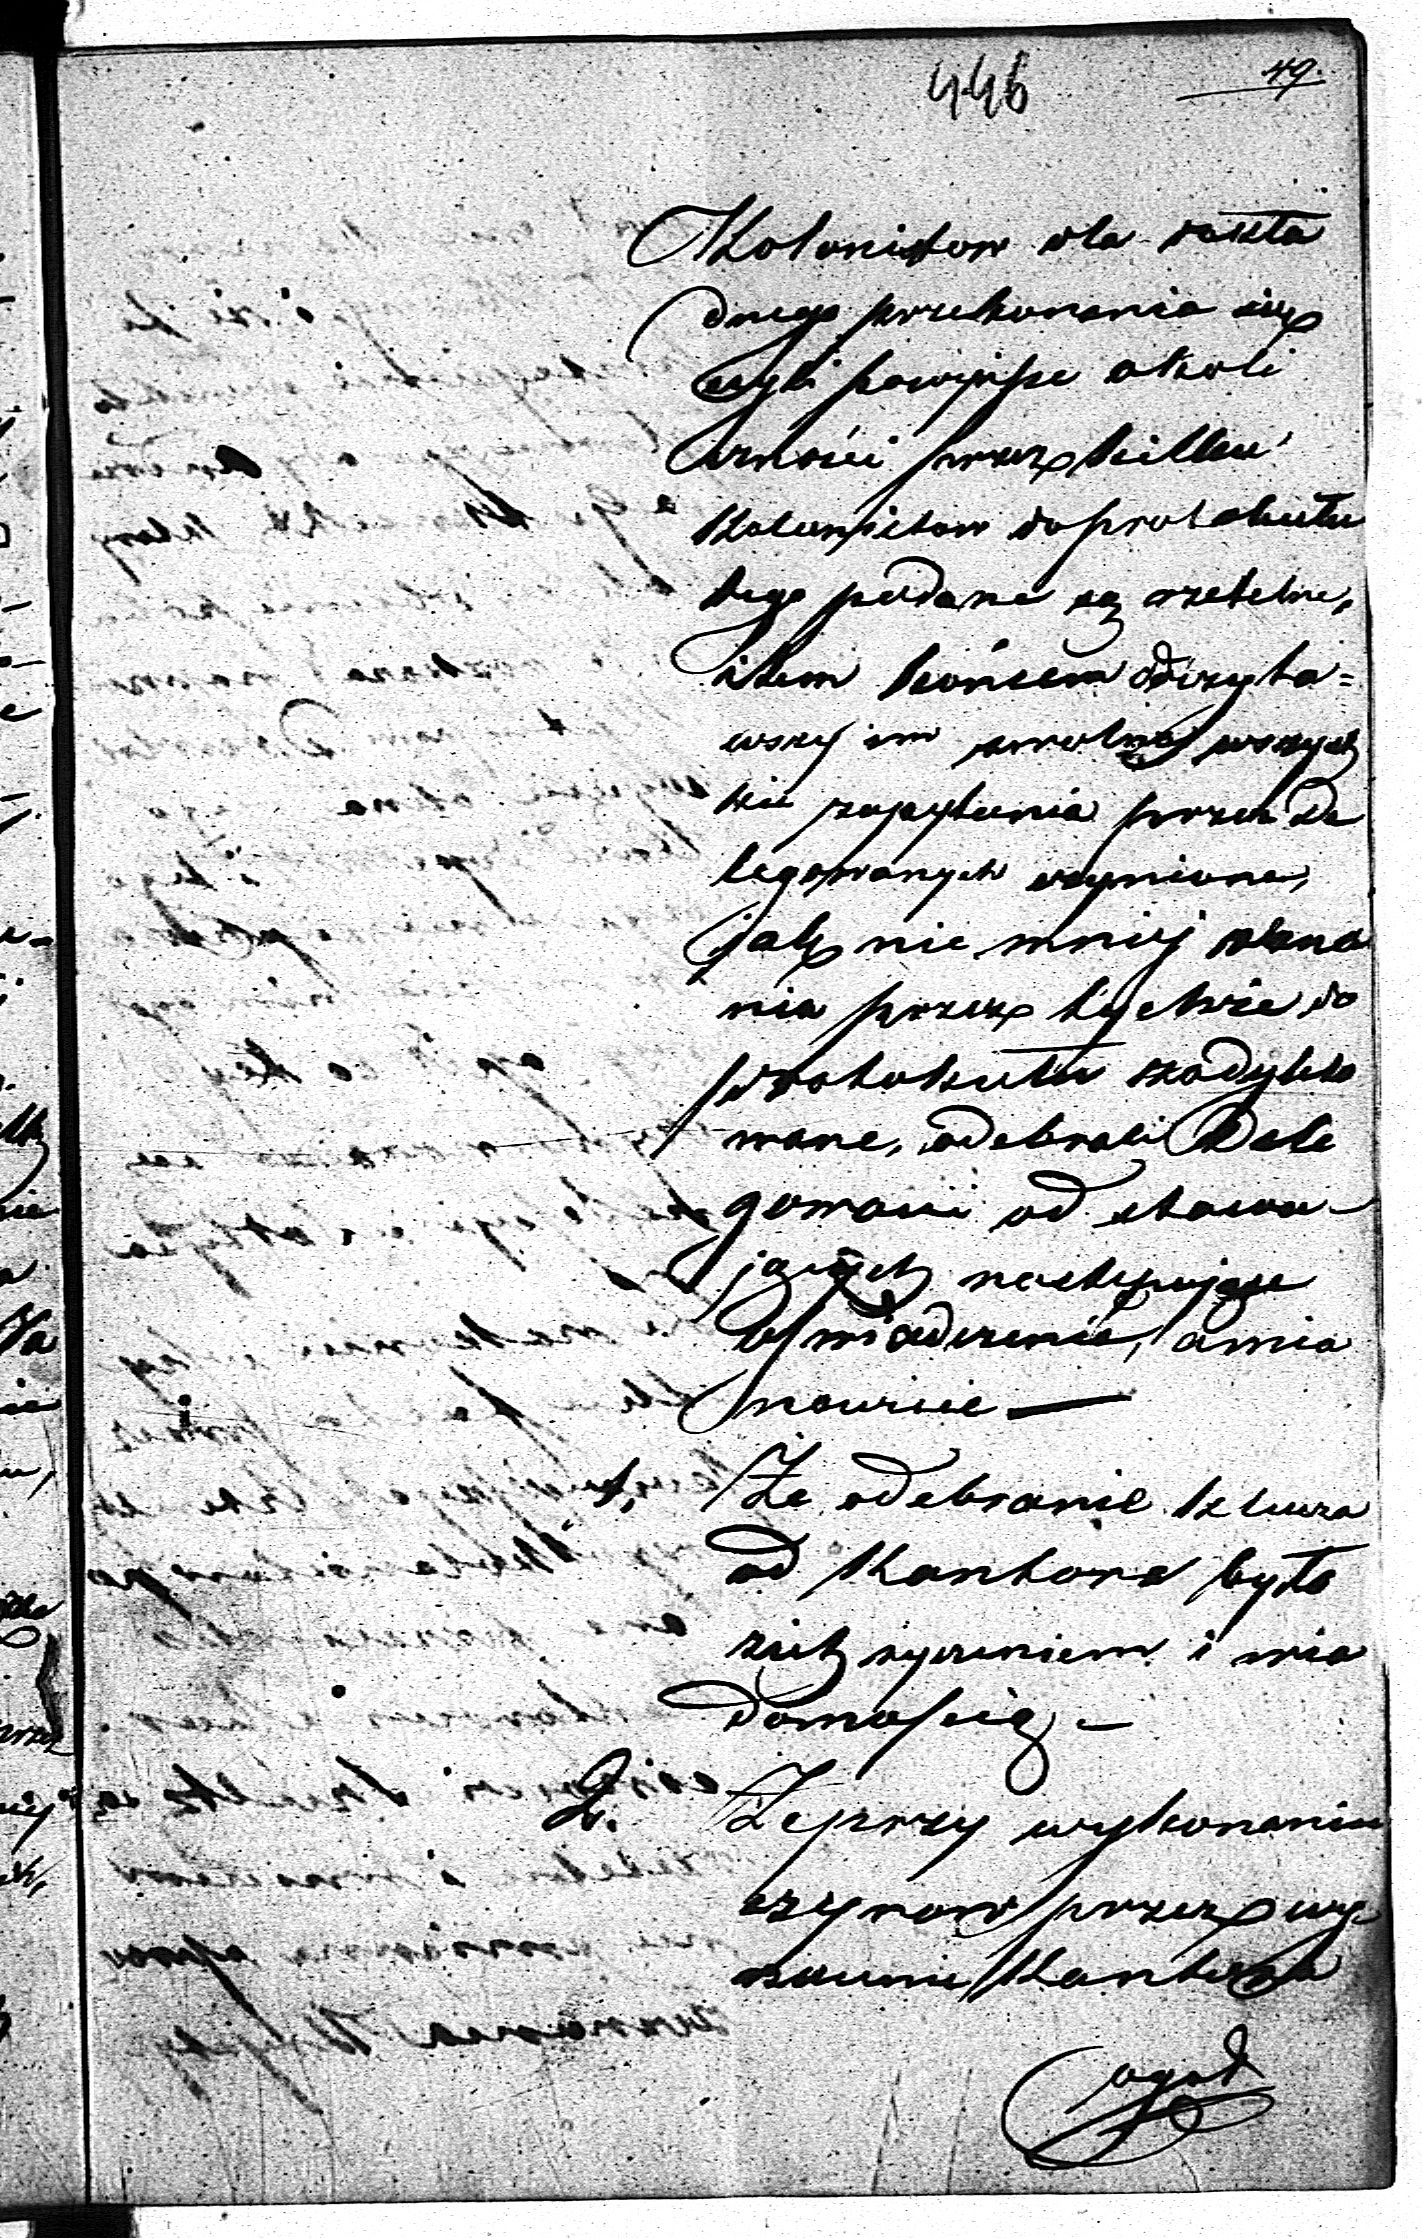 446
49.
Kolonistow dla dokła
dnego przekonania się
czyli powyższe okoli
czności przez kilku
Kolonistow do protokułu
tego podane są rzetelne,
tem końcem odczyta=
wszy im wszyst
kie zapytania przez De
legowanych uczynione,
jak nie mniej zezna
nia przez tychże do
protokułu zadykto
wane, odebrali Dele
gowani od stawa-
jących następujące
oświadczenie, a mia
nowicie —
1. Że odebranie klucza
od Kantora było
zich życzeniem i wia
domością —
2. Że przy wykonaniu
czynow przez wy
Kantora